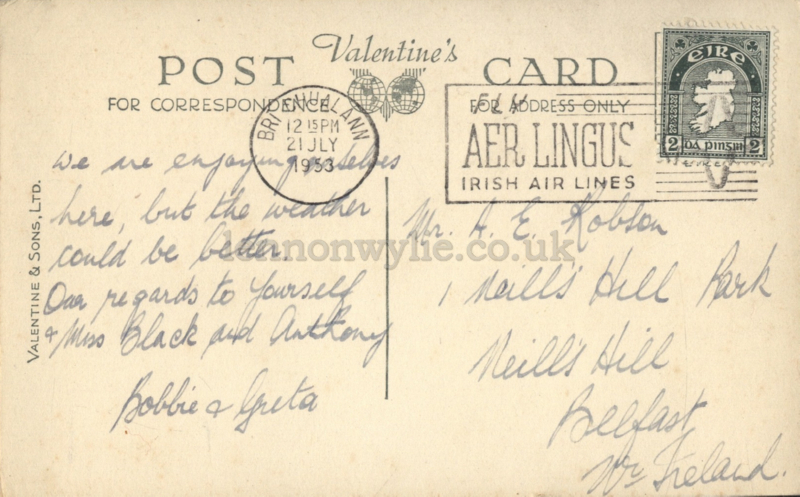 Valentine's
POST CARD
FOR CORRESPONDENCE
FOR ADDRESS ONLY
BRÍ CHUALANN
12 15 PM
21 JLY
1953
FLY
AER LINGUS
IRISH AIR LINES
EIRE
2 DA PINSIN 2
VALENTINE & SONS, LTD.
We are enjoying ourselves
here, but the weather
could be better.
Our regards to Yourself
& Miss Black and Anthony
Bobbie & Greta
Mr. A. E. Robson
1 Neill's Hill Park
Neill's Hill
Belfast
Nn Ireland.
lennonwylie.co.uk